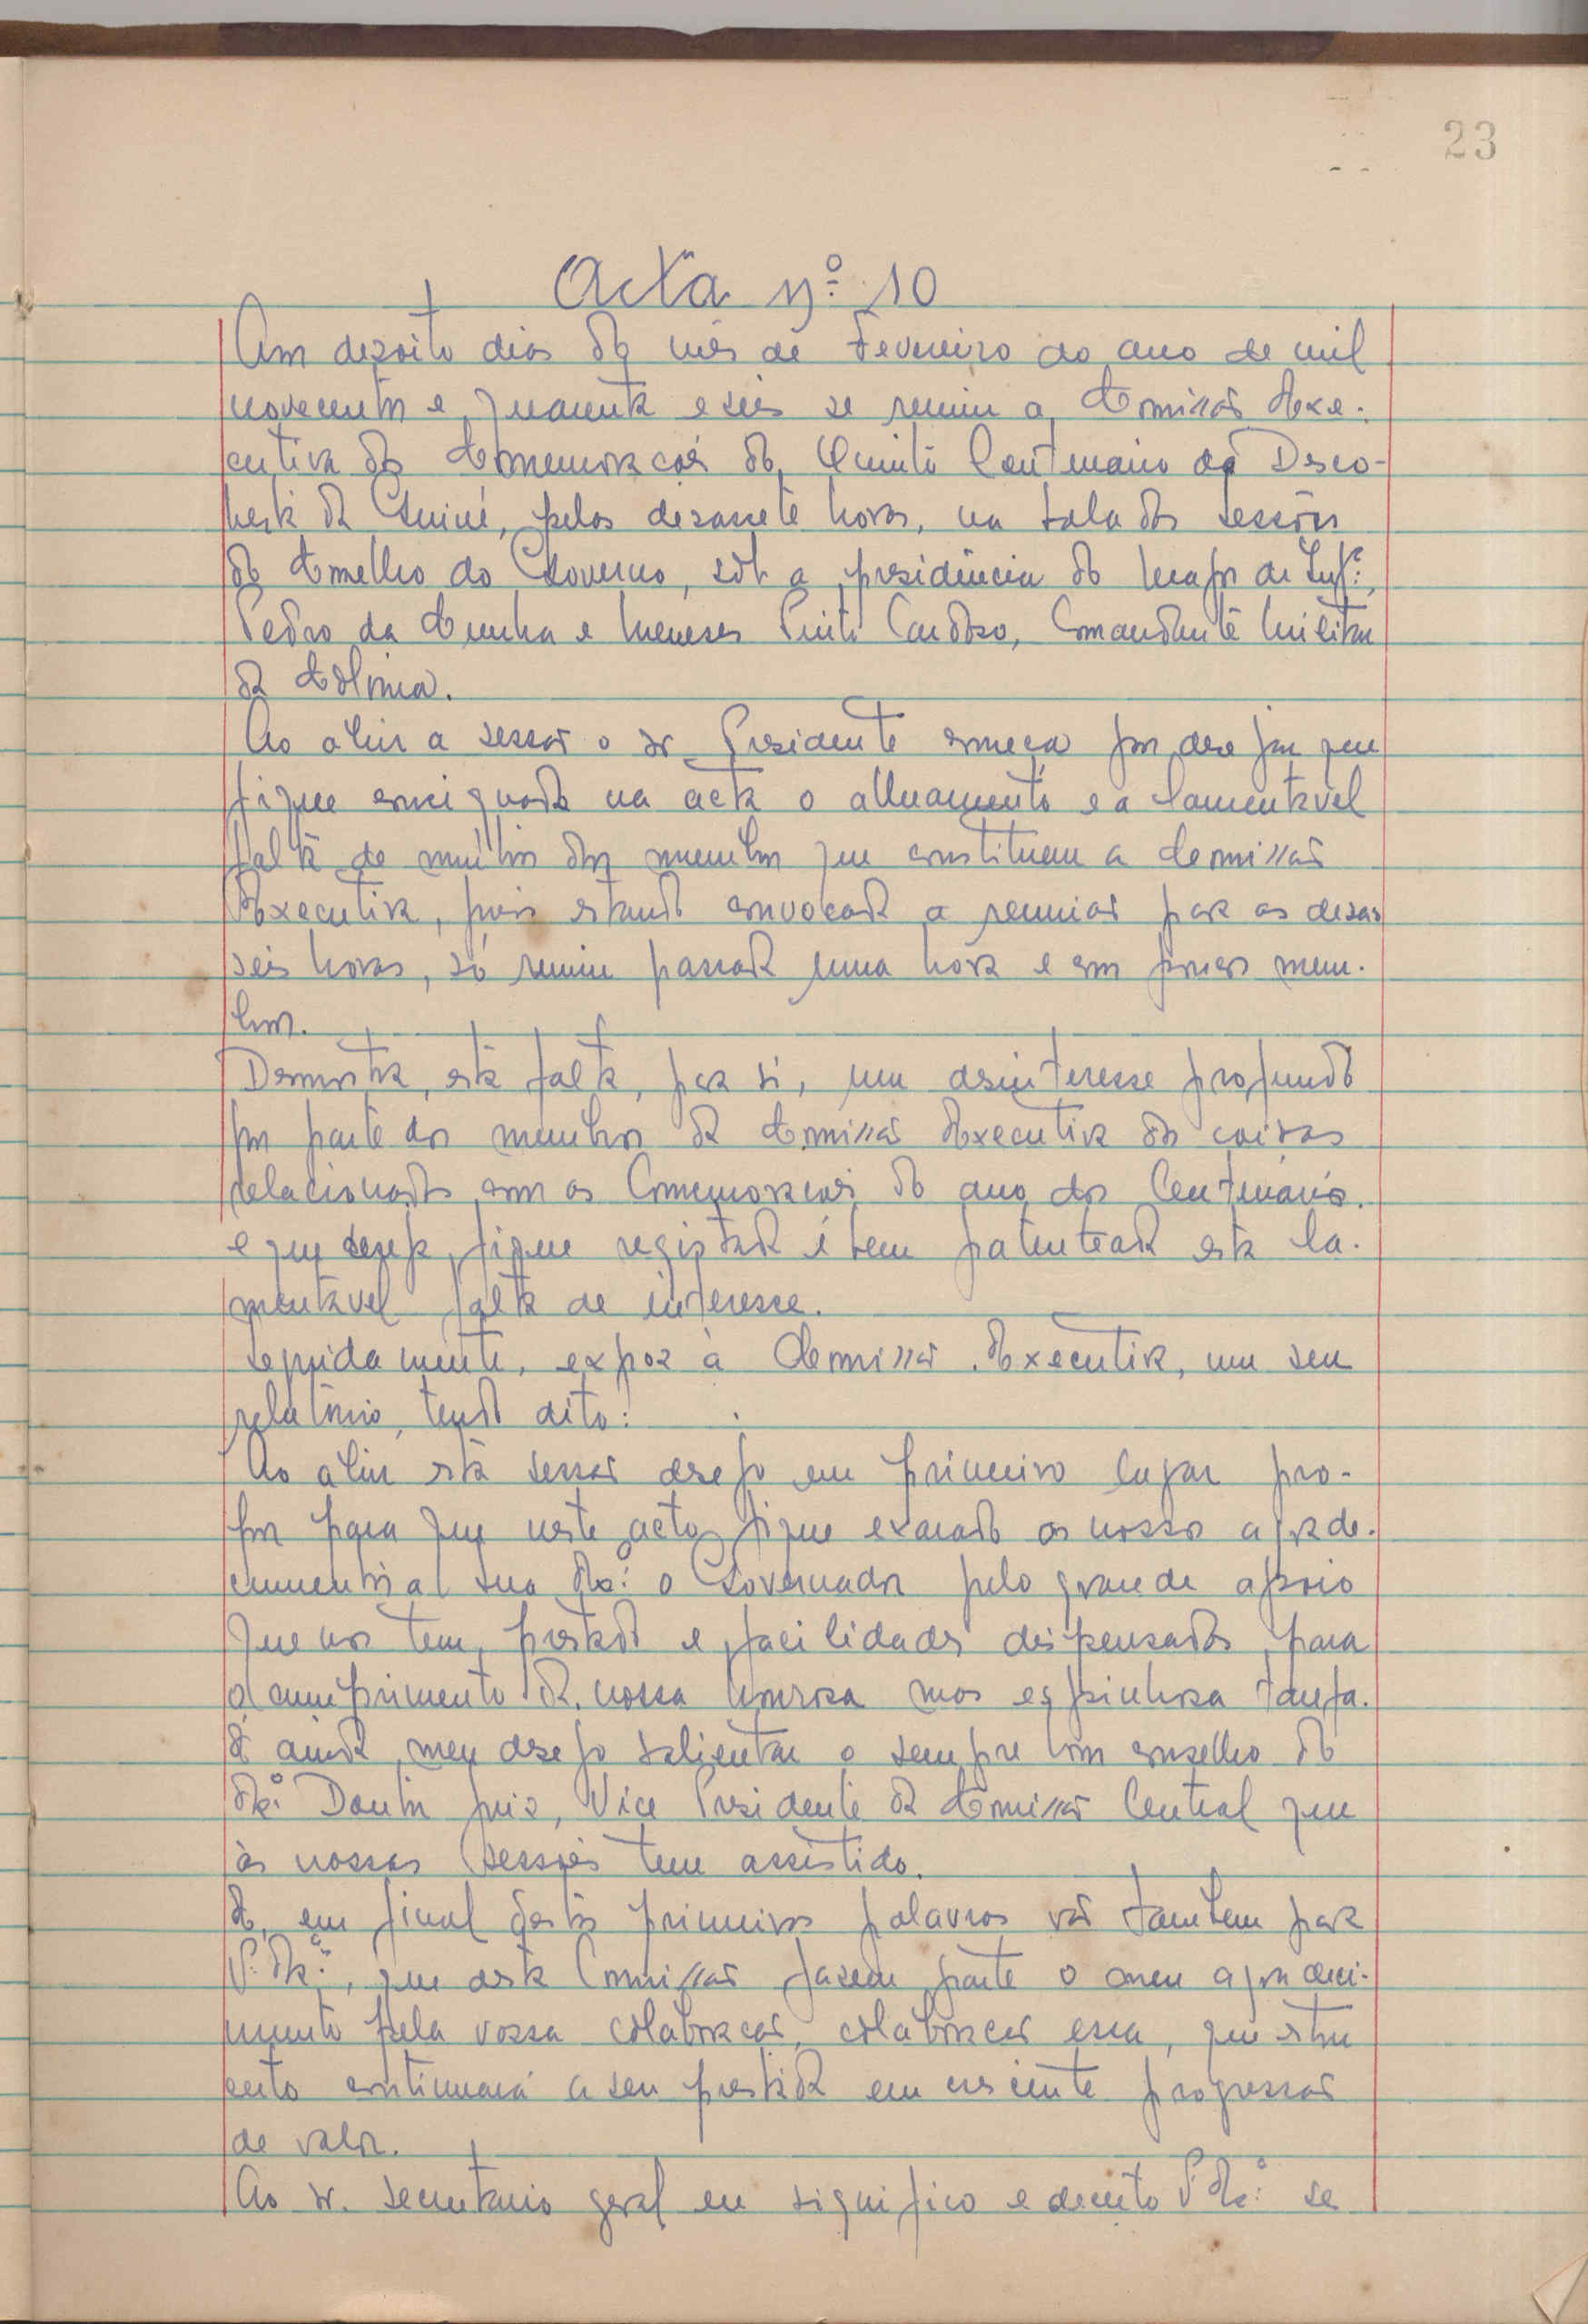 23
Acta nº 10
Aos dezoito dias do mês de Fevereiro do ano de mil
novecentos e quarenta e seis se reuniu a Comissão Exe-
cutiva das Comemorações do Quinto Centenário da Desco-
berta da Guiné, pelas dezassete horas, na Sala das Sessões
do Conselho do Governo, sob a presidência do Major de Infª.,
Pedro da Cunha e Meneses Pinto Cardoso, Comandante Militar
da Colónia.
Ao abrir a sessão o sr Presidente começa por desejar que
fique consignado na acta o e a lamentavel
falta de muitos dos membros que constituem a Comissão
Executiva, pois estando convocada a reunião para as dezas
seis horas, só reuniu passada uma hora e com poucos mem-
bros.
Demonstra, esta falta, par si, um desinteresse profundo
por parte dos membros da Comissão Executiva das coisas
relacionadas com as Comemorações do ano dos Centenários.
e que deseja fique registada e bem patenteada esta la-
mentavel falta de interesse.
Seguidamente, expoz à Comissão Executiva, um seu
relatório, tendo dito:
Ao abrir esta sessão desejo em primeiro lugar pro-
por para que neste acto fique exarado os nossos agrade-
cimentos a Sua Exª. o Governador pelo grande apoio
que nos tem prestado e facilidades dispensadas para
o cumprimento da nossa honrosa mas espinhosa tarefa.
É ainda meu desejo salientar o sempre bom conselho do
Exº. Doutor juiz, Vice Presidente da Comissão Central que
às nossas sessões tem assistido.
E, em final destas primeiras palavras vão tambem para
V. Exªs., que desta Comissão fazem parte o meu agradeci-
mento pela vossa colaboração, colaboração essa, que estou
certo continuará a ser prestada em crescente progressão
de valor.
Ao sr. secretário geral eu significo e decerto V. Exª. se